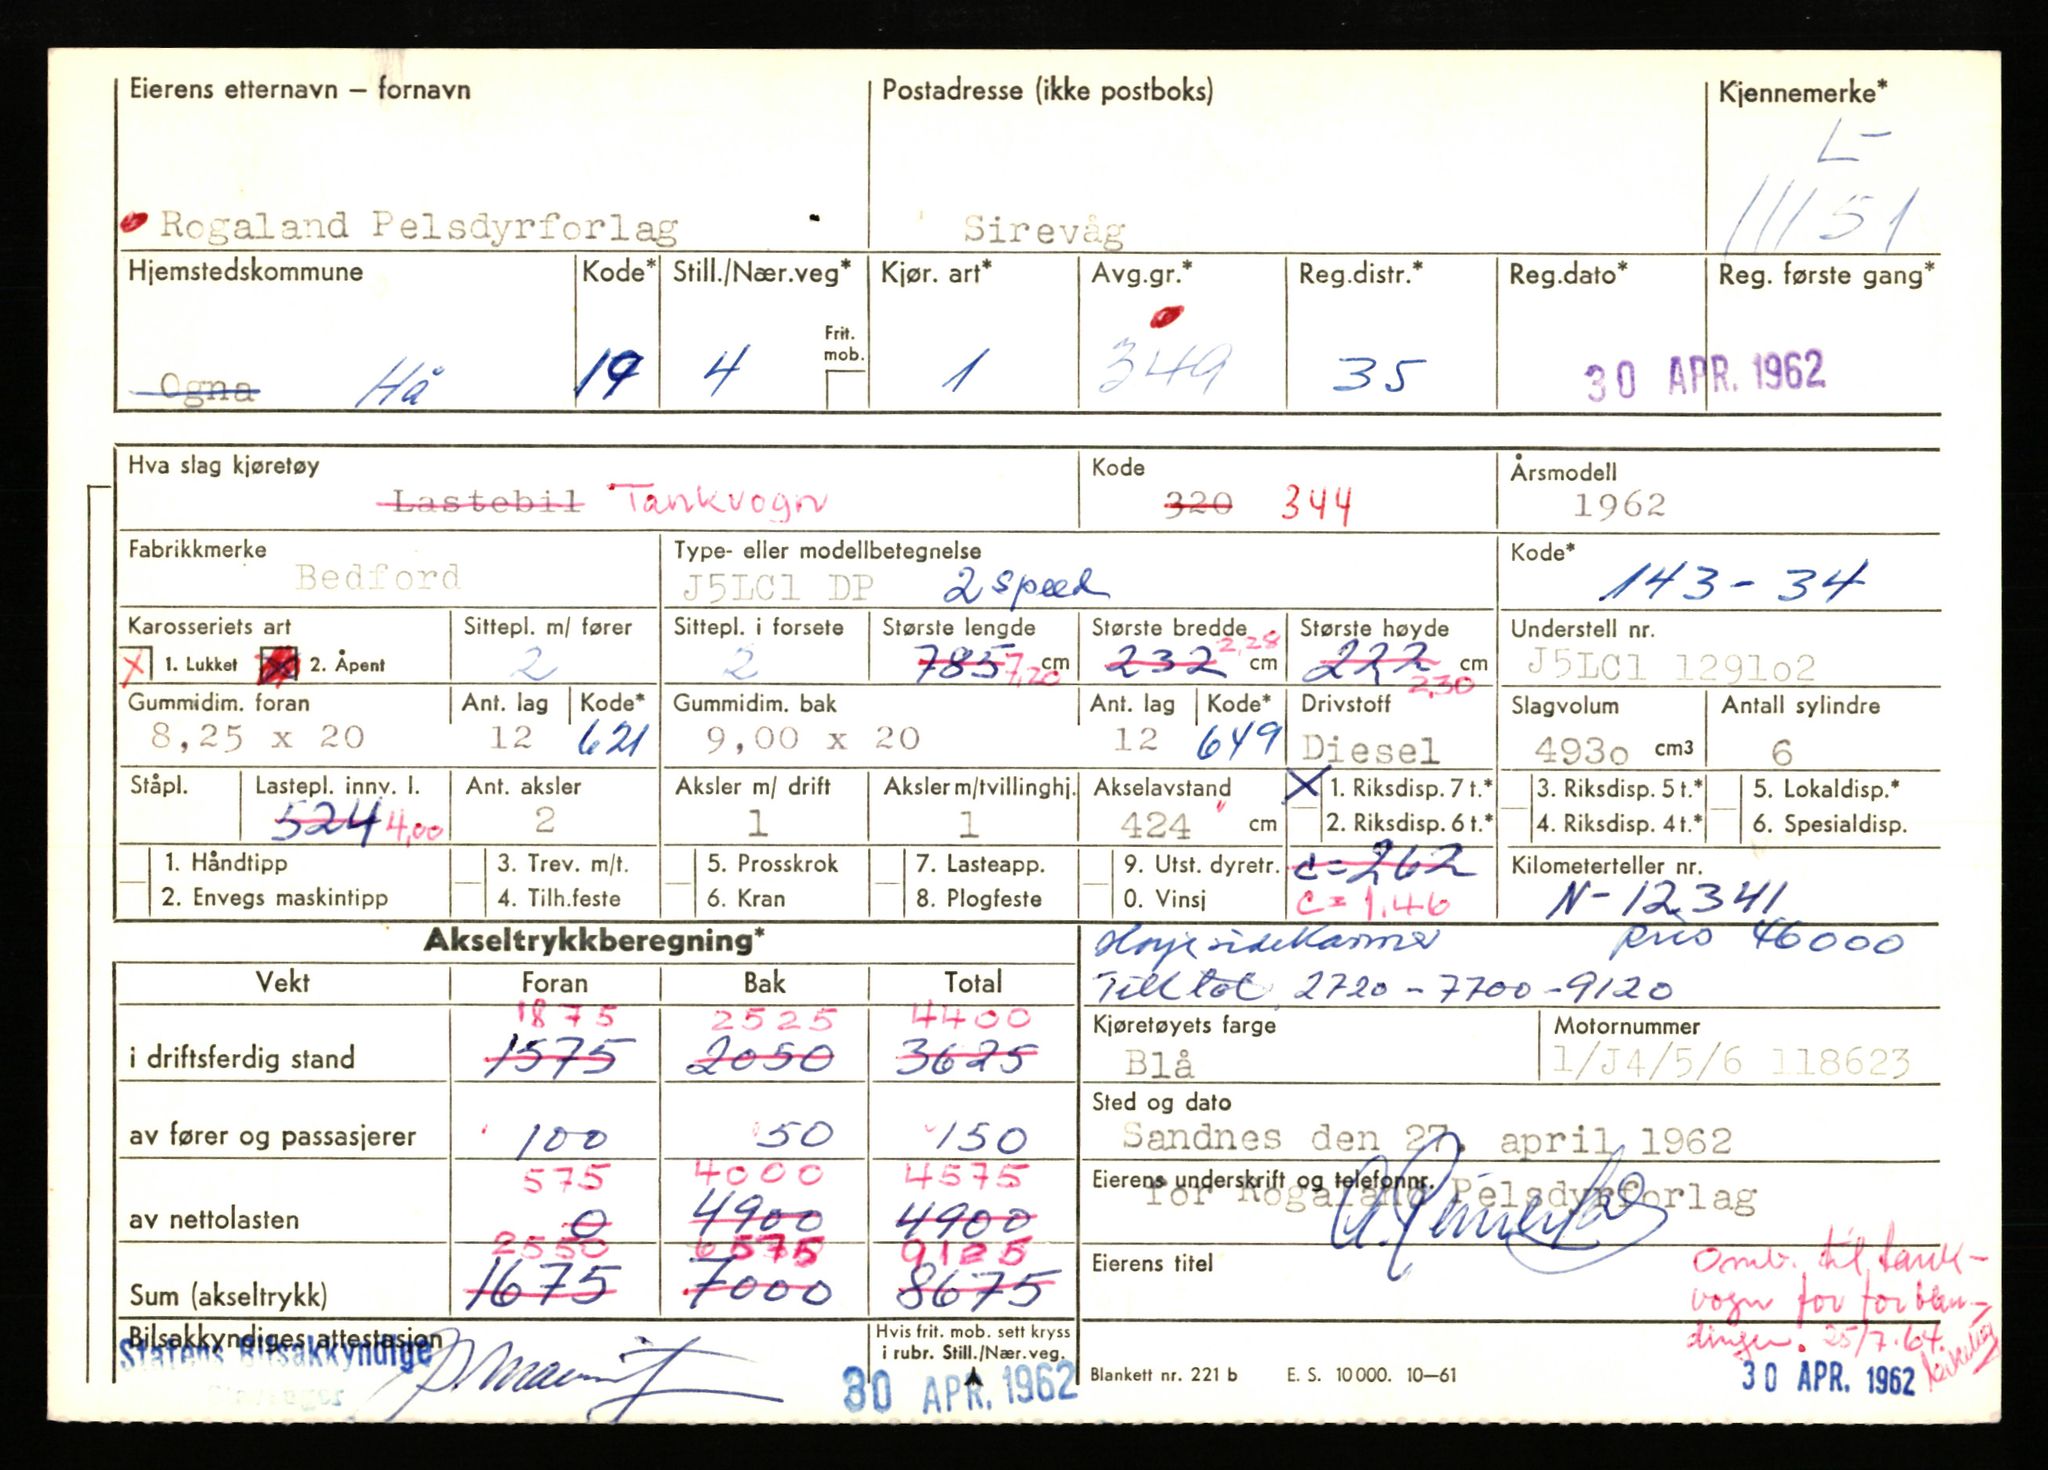 Eierens etternavn – fornavn Postadresse (ikke postboks) Kjennemerke*
L-
Rogaland Pelsdyrforlag Sirevåg 11151
Hjemstedskommune Kode* Still./Nær.veg* Kjør. art* Avg.gr.* Reg.distr.* Reg.dato* Reg. første gang*
Frit. mob.
Ogna Hå 19 4 1 349 35 30 APR. 1962
Hva slag kjøretøy Kode Årsmodell
Lastebil Tankvogn 320 344 1962
Fabrikkmerke Type- eller modellbetegnelse Kode*
Bedford J5LC1 DP 2 speed 143-34
Karosseriets art Sittepl. m/ fører Sittepl. i forsete Største lengde Største bredde Største høyde Understell nr.
X 1. Lukket X 2. Åpent 2 2 785 7,20 cm 232 2,28 cm 222 2,30 cm J5LC1 1291o2
Gummidim. foran Ant. lag Kode* Gummidim. bak Ant. lag Kode* Drivstoff Slagvolum Antall sylindre
8,25 x 20 12 621 9,00 x 20 12 649 Diesel 493o cm3 6
Ståpl. Lastepl. innv. l. Ant. aksler Aksler m/ drift Aksler m/tvillinghj. Akselavstand X 1. Riksdisp. 7 t.* 3. Riksdisp. 5 t.* 5. Lokaldisp.*
524 4,00 2 1 1 424 " cm 2. Riksdisp. 6 t.* 4. Riksdisp. 4 t.* 6. Spesialdisp.
1. Håndtipp 3. Trev. m/t. 5. Prosskrok 7. Lasteapp. 9. Utst. dyretr. c=262 Kilometerteller nr.
2. Envegs maskintipp 4. Tilh.feste 6. Kran 8. Plogfeste 0. Vinsj c=1.46 N-12341
Akseltrykkberegning* pris 46000
Vekt Foran Bak Total Till tot 2720-7700-9120
1875 2525 4400 Kjøretøyets farge Motornummer
i driftsferdig stand 1575 2050 3625 Blå 1/J4/5/6 118623
Sted og dato
av fører og passasjerer 100 50 150 Sandnes den 27. april 1962
575 4000 4575 Eierens underskrift og telefonnr.
for Rogaland Pelsdyrforlag
av nettolasten 0 4900 4900
2550 6575 9125 Eierens titel
Omb. til tank-
Sum (akseltrykk) 1675 7000 8675 vogn for forblan-
dinger. 25/7.64.
Bilsakkyndiges attestasjon Hvis frit. mob. sett kryss
i rubr. Still./Nær.veg.
Statens Bilsakkyndige
30 APR. 1962 Blankett nr. 221 b E. S. 10 000. 10–61 30 APR. 1962